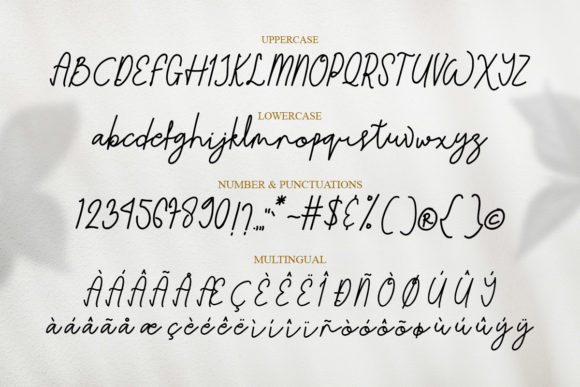 UPPERCASE
ABCDEFGHIJKLMNOPQRSTUVWXYZ
LOWERCASE
abcdefghijklmnopqrstuvwxyz
NUMBER & PUNCTUATIONS
1234567890!?,..,"`*~#$¢%()®{}©
MULTINGUAL
ÀÁÂÃÅÆÇÈÉÊËÎÐÑÒØÚÛÝ
àáâãåæçèéêëìíîïñòóôõøùúûýÿ